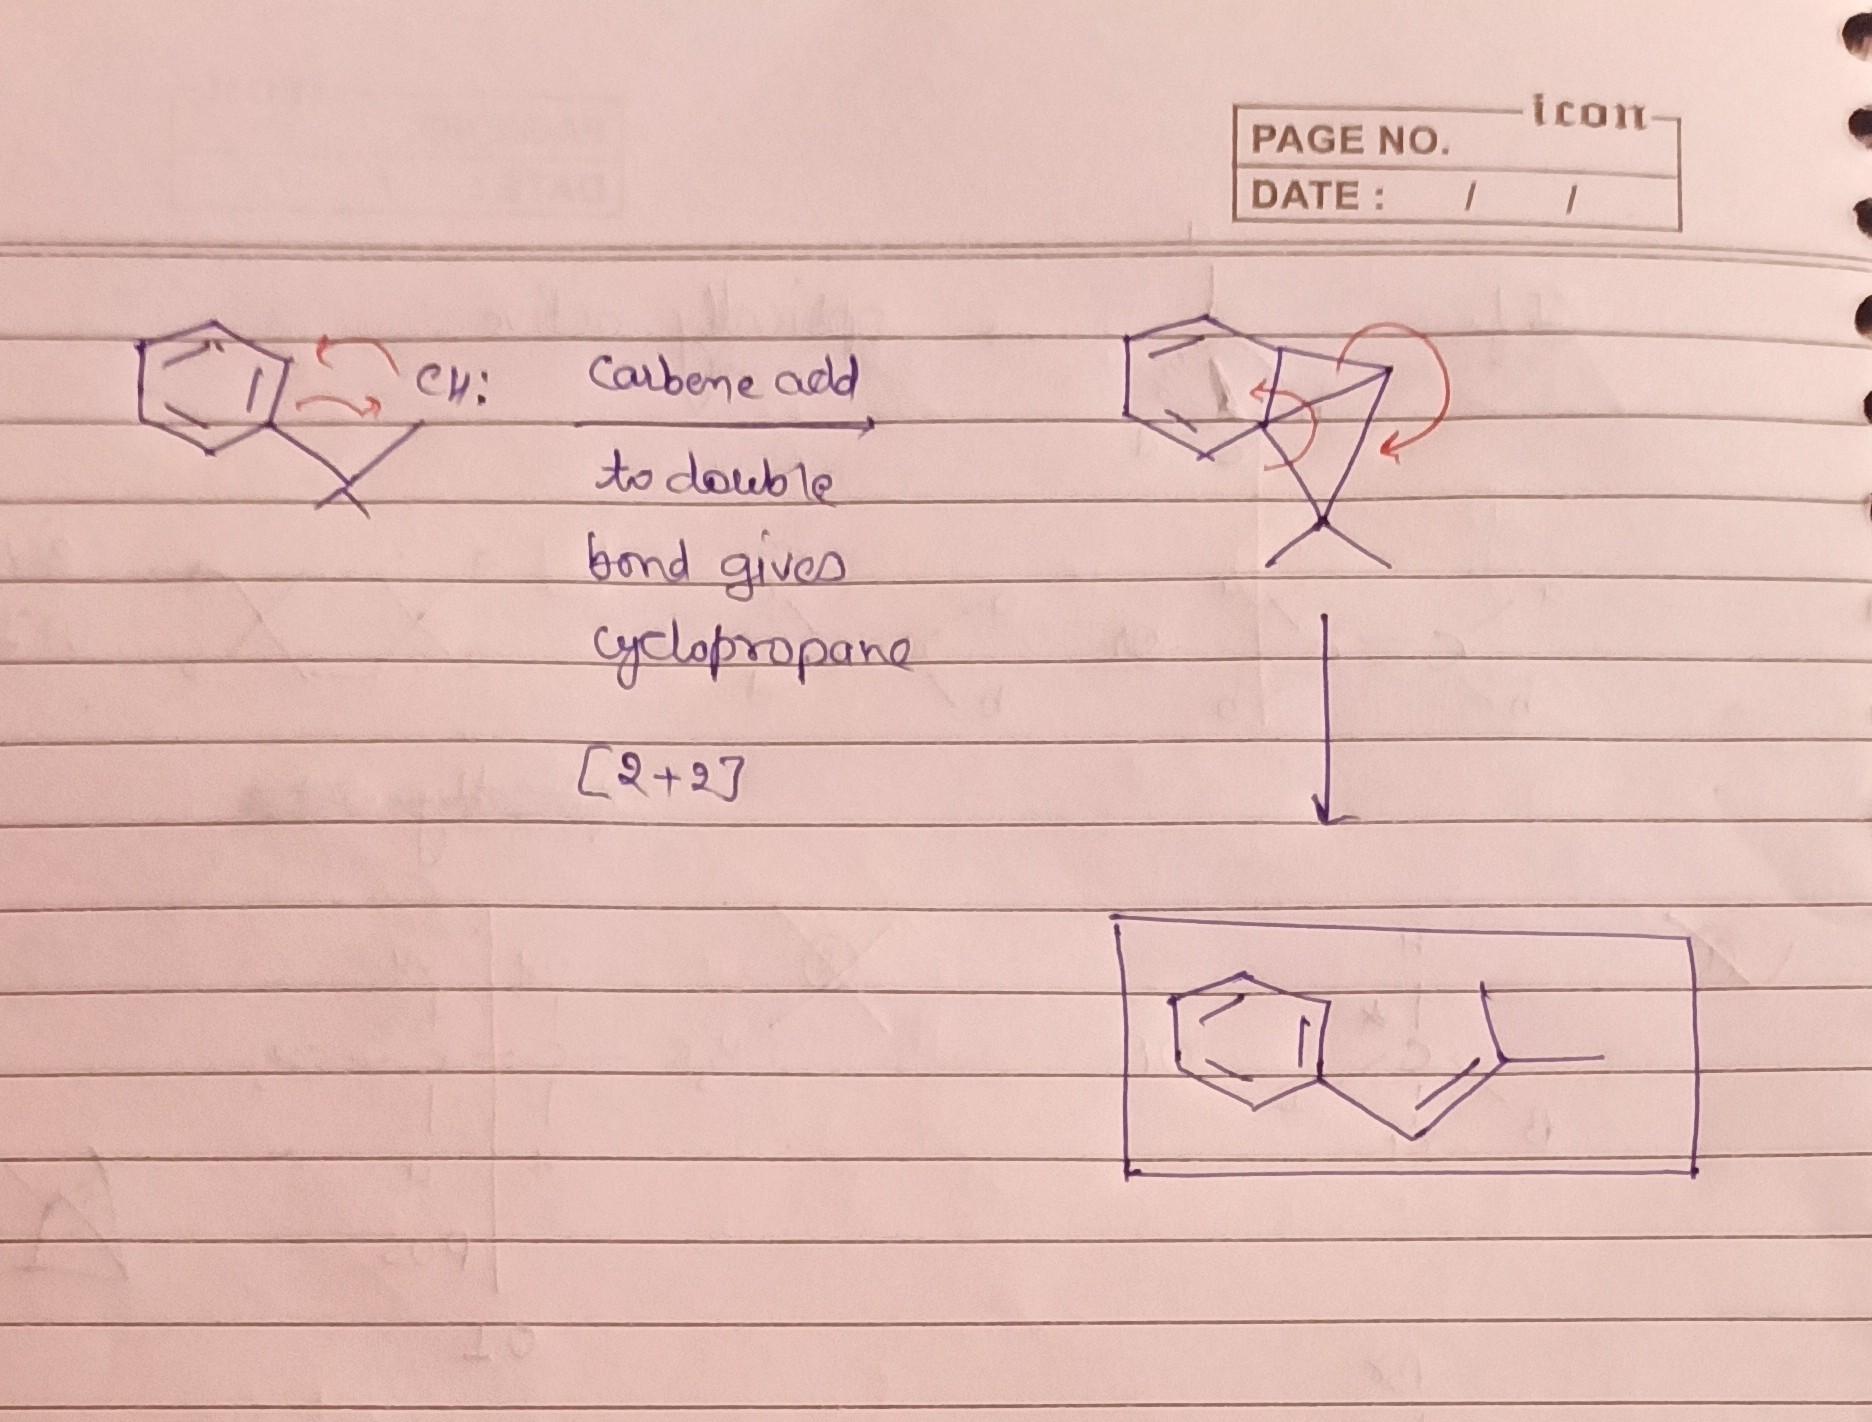 icon
PAGE NO.
DATE : / /
CH:
Carbene add
to double
bond gives
cyclopropane
[2+2]